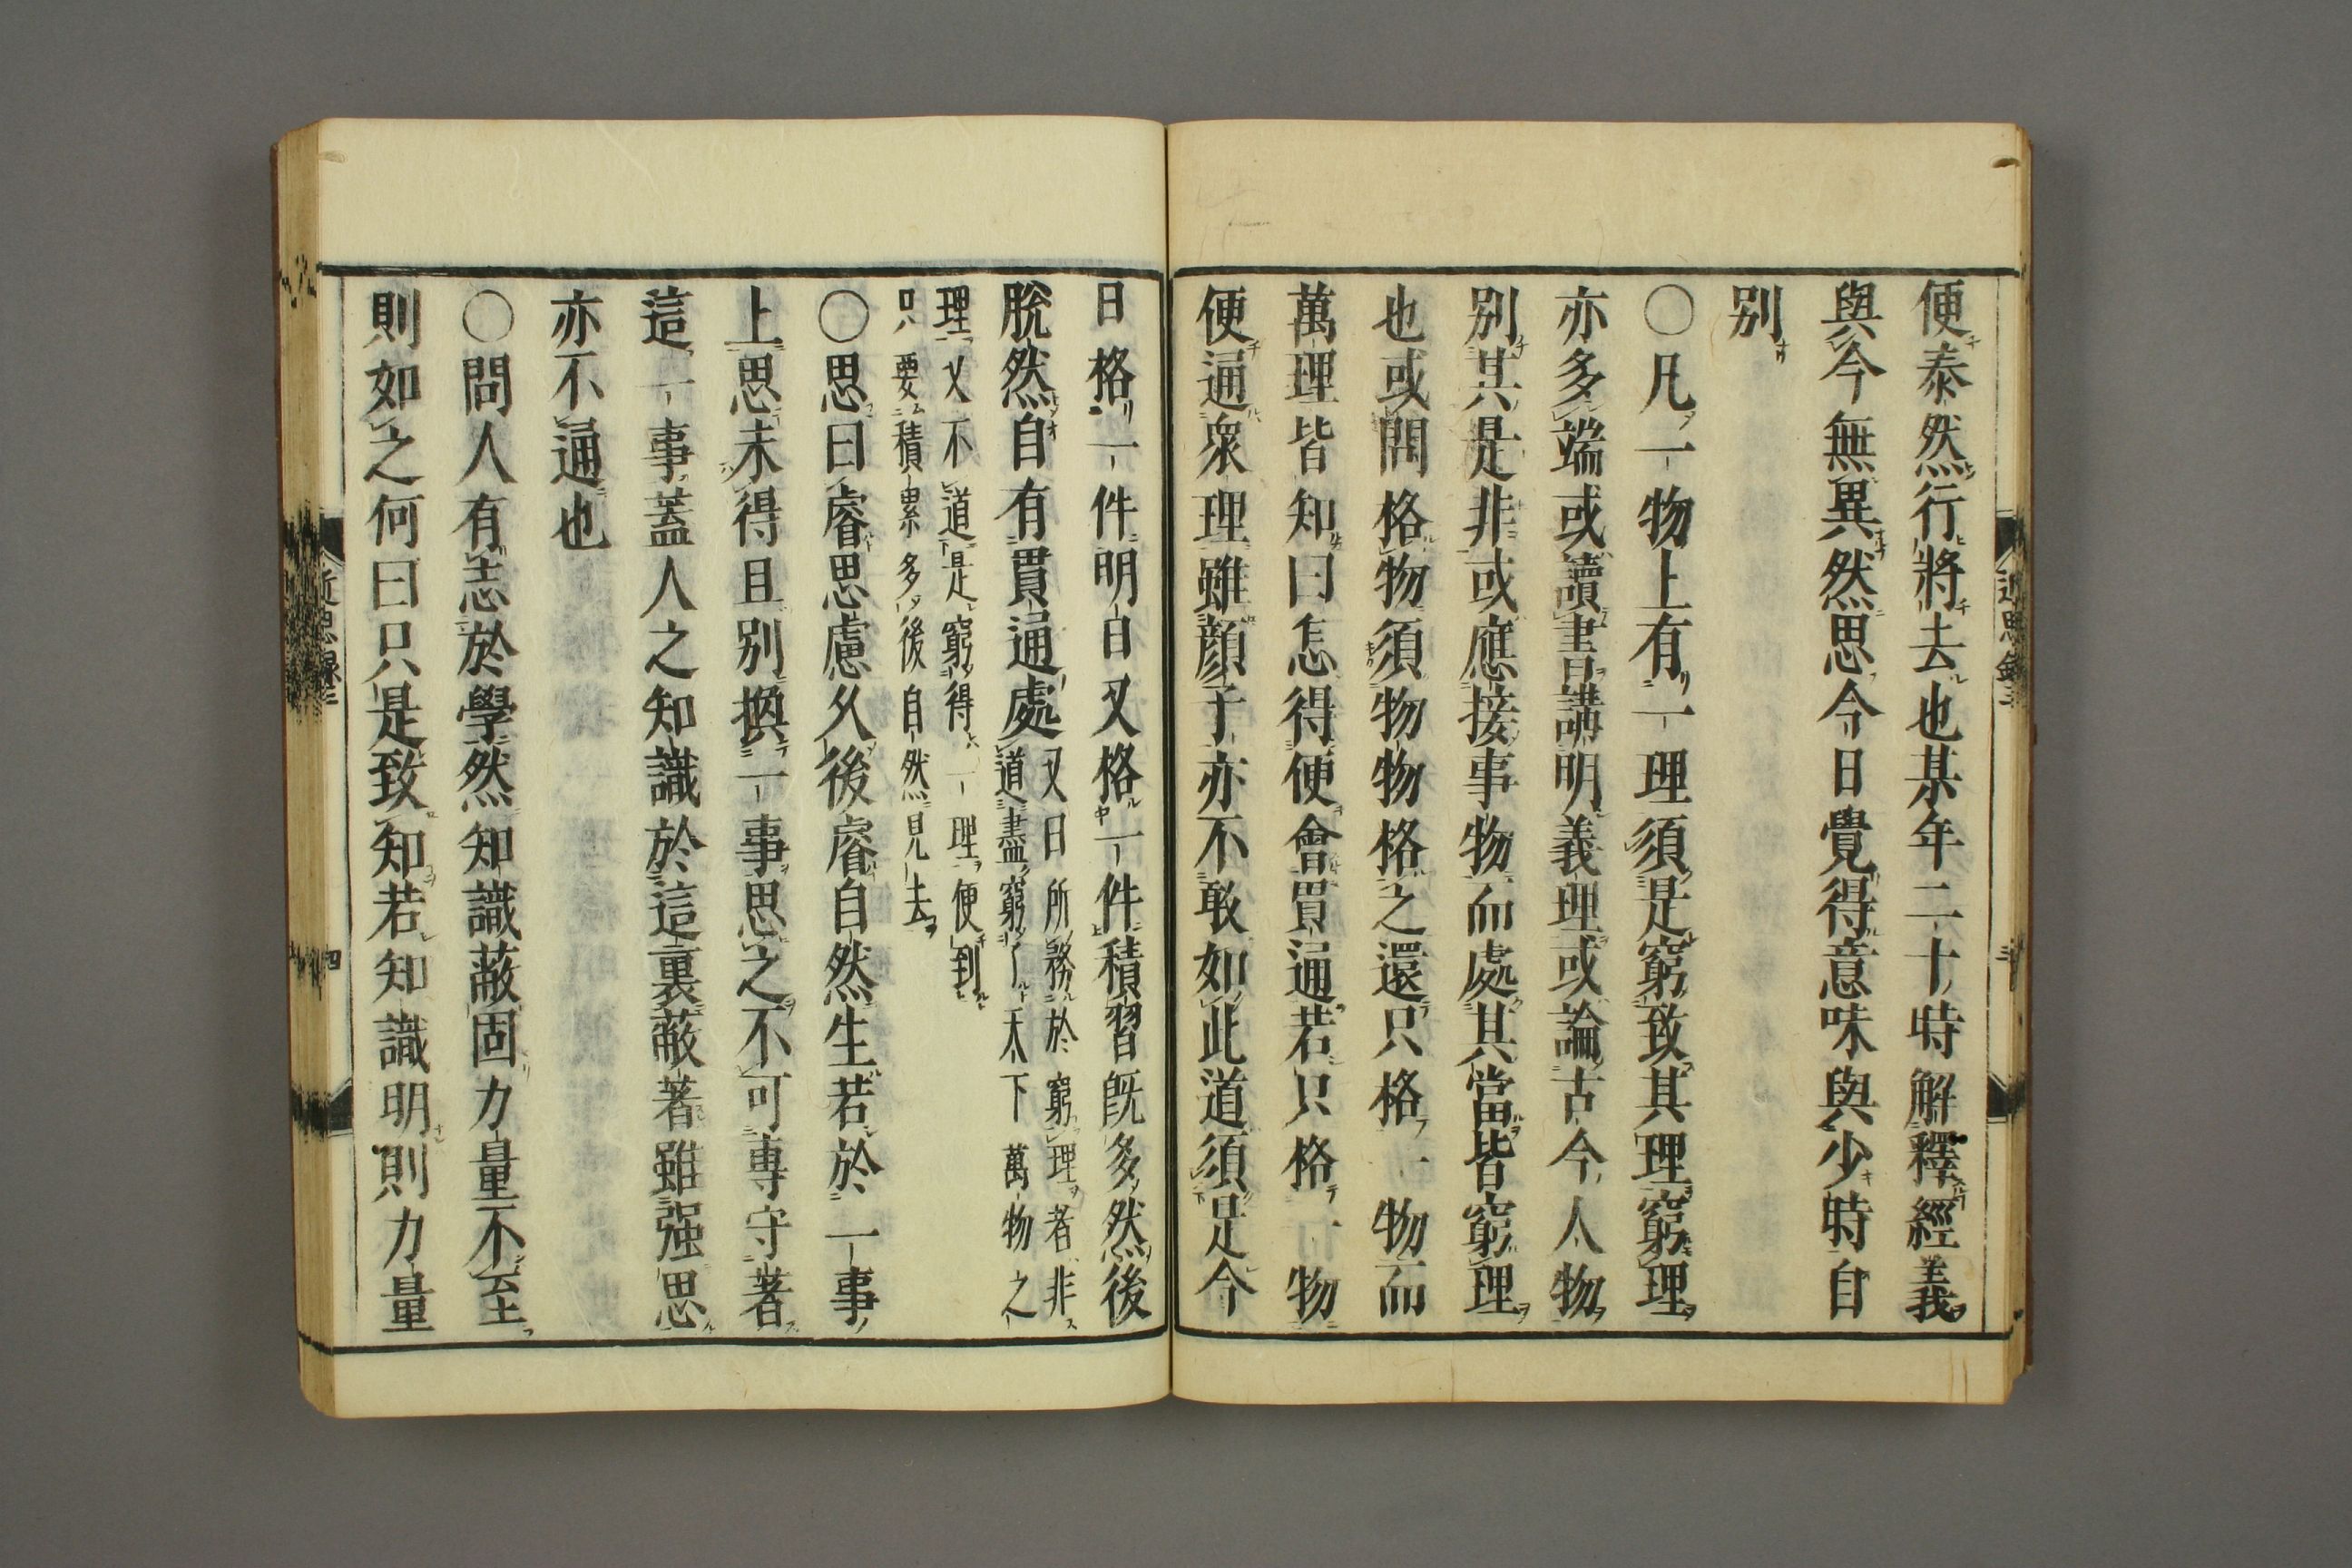 便泰然行將去也某年二十時解釋經義
與今無異然思今日覺得意味與少時自
別
○凡一物上有一理須是窮致其理窮理
亦多端或讀書講明義理或論古今人物
別其是非或應接事物而處其當皆窮理
也或問格物須物物格之還只格一物而
萬理皆知曰怎得便會貫通若只格一物
便通衆理雖顔子亦不敢如此道須是今
近思錄三
三
日格一件明日又格一件積習既多然後
脫然自有貫通處
又曰所務於窮理者非
道盡窮了天下萬物之
理又不道是窮得一理便到
只要積累多後自然見去
○思曰睿思慮久後睿自然生若於一事
上思未得且別換一事思之不可專守著
這一事蓋人之知識於這裏蔽著雖强思
亦不通也
○問人有志於學然知識蔽固力量不至
則如之何曰只是致知若知識明則力量
近思錄三
四